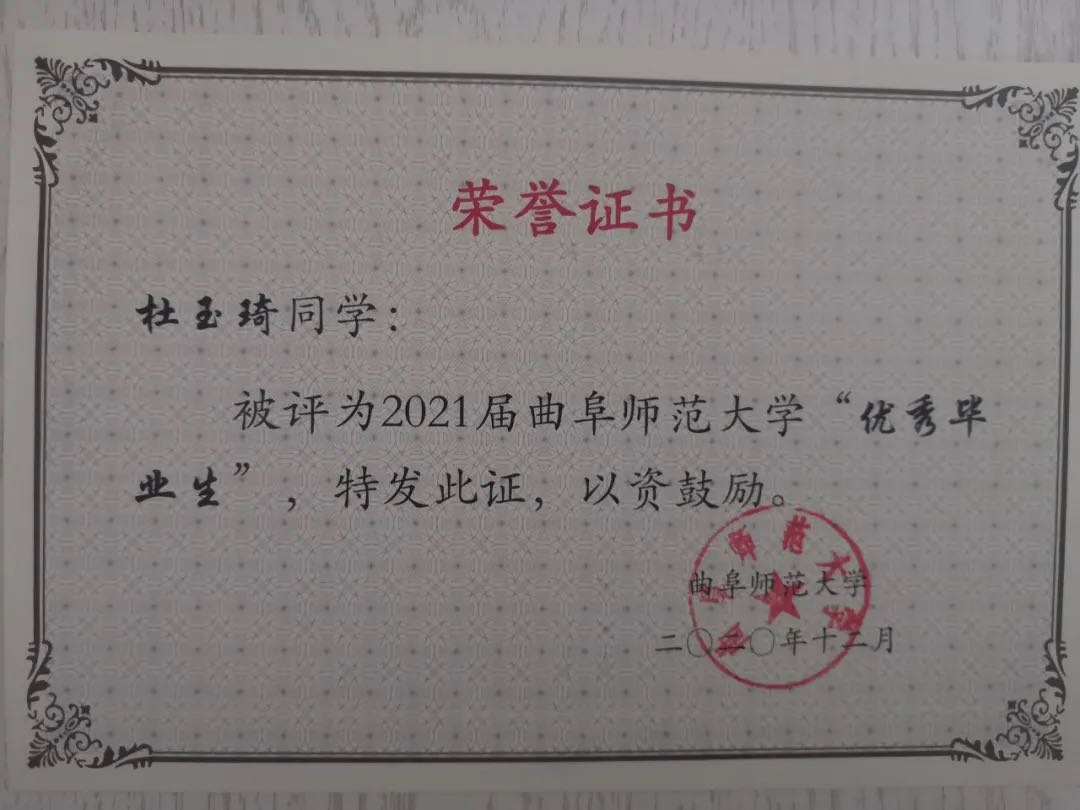 荣誉证书
杜玉琦同学：
被评为2021届曲阜师范大学“优秀毕
业生”，特发此证，以资鼓励。
曲阜师范大学
二〇二〇年十二月
师范大学